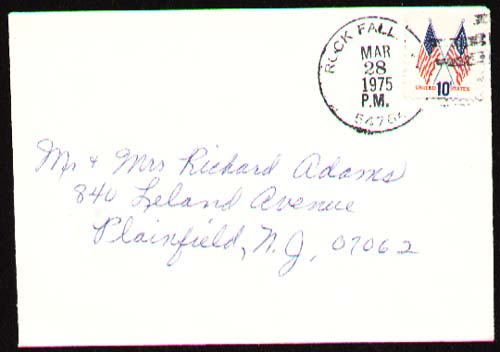 ROCK FALL
MAR
28
1975
P.M.
UNITED 10c STATES
Mr + Mrs Richard Adams
840 Leland Avenue
Plainfield, N.J, 07062